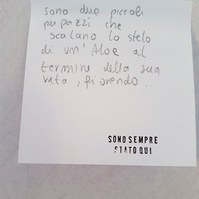 sono due piccoli
pupazzi che
scalano lo stelo
di un'Aloe al
termine della sua
vita, fiorendo.
SONO SEMPRE
STATO QUI